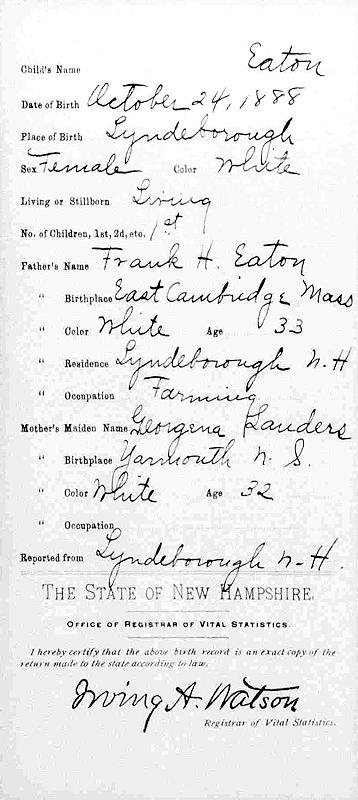 Child's Name Eaton
Date of Birth October 24, 1888
Place of Birth Lyndeborough
Sex Female Color White
Living or Stillborn Living
No. of Children, 1st, 2d, etc. 1st
Father's Name Frank H. Eaton
" Birthplace East Cambridge Mass
" Color White Age 33
" Residence Lyndeborough N-H
" Occupation Farming
Mother's Maiden Name Georgena Landers
" Birthplace Yarmouth N. S.
" Color White Age 32
" Occupation
Reported from Lyndeborough N-H.
THE STATE OF NEW HAMPSHIRE.
OFFICE OF REGISTRAR OF VITAL STATISTICS.
I hereby certify that the above birth record is an exact copy of the
return made to the state according to law.
Irving A. Watson
Registrar of Vital Statistics.